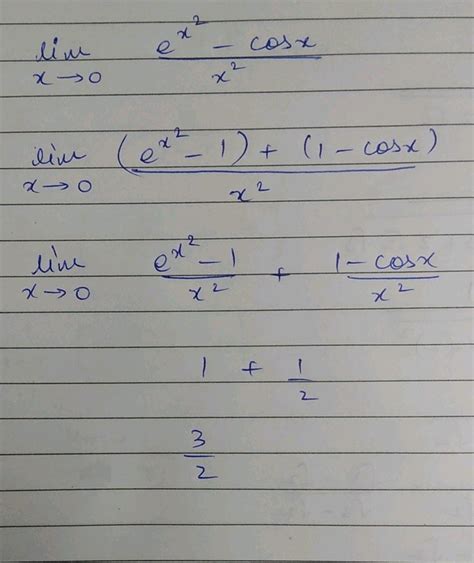 lim x→0 (e^x² - cosx)/x²
lim x→0 ((e^x² - 1) + (1 - cosx))/x²
lim x→0 (e^x² - 1)/x² + (1 - cosx)/x²
1 + 1/2
3/2